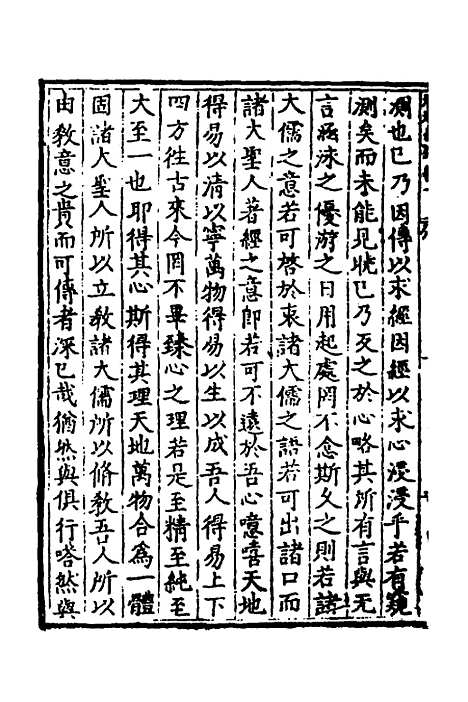 測也已乃因傳以求經因經以求心浸浸乎若有窺
測矣而未能見晄已乃反之於心略其所有言與无
言涵泳之優游之日用起處罔不念斯久之則若諸
大儒之意若可啓於衷諸大儒之語若可出諸口而
諸大聖人著經之意卽若可不遠於吾心噫嘻天地
得易以清以寧萬物得易以生以成吾人得易上下
四方徃古來今罔不畢臻心之理若是至精至純至
大至一也耶得其心斯得其理天地萬物合為一體
固諸大聖人所以立敎諸大儒所以脩敎吾人所以
由敎意之肯而可傳者深已哉猶然與俱行嗒然與